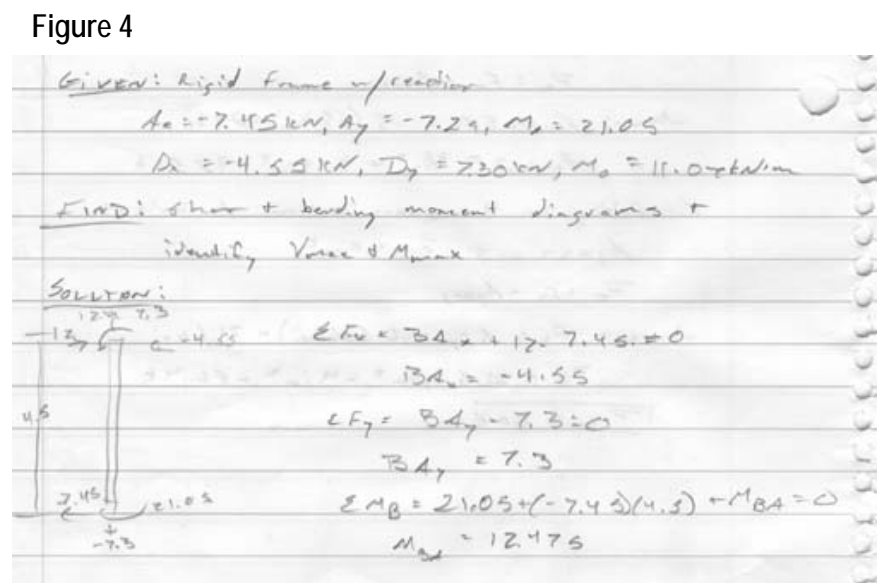 Figure 4
GIVEN: Rigid frame w/reaction
Ax = -7.45 kN, Ay = -7.29, MA = 21.05
Dx = -4.55 kN, Dy = 7.30 kN, = 11.04 kN/m
FIND: shear + bending moment diagrams +
identify Vmax & Mmax
SOLUTION:
7.3
12 -4.55 ΣFx = BAx + 12 - 7.45 = 0
BAx = -4.55
4.5 ΣFy = BAy - 7.3 = 0
BAy = 7.3
7.45 21.05 ΣMB = 21.05 + (-7.45)(4.5) + MBA = 0
-7.3 MBA = 12.475